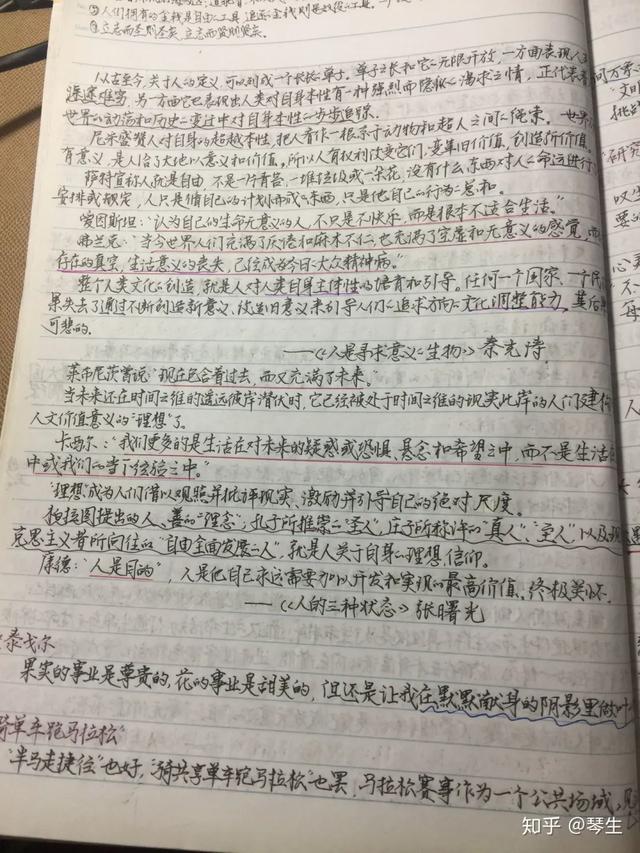 ③人们拥有的金钱是自由的工具,追逐金钱则是奴役的工具。
④立志而圣则圣矣,立志而贤则贤矣。
从古至今,关于人的定义,可以列成一个长长的单子。单子之长和它的无限开放,一方面表现人
遥遥难寄,另一方面它也表现出人类对自身本性有一种强烈而隐秘的渴求之情,正代表着
世界的动荡和历史的变迁中对自身本性的步步追踪。
尼采盛赞人对自身的超越本性,把人看作一根系于动物和超人之间的绳索。世界
有意义,是人给了大地以意义和价值。所以人有权利改变它们:变革旧价值,创造新价值。
萨特宣称人就是自由,不是一片青苔,一堆垃圾或一朵花,没有什么东西对人的命运进行
安排或规定,人只是循自己的计划而成的东西,只是他自己的行为的总和。
爱因斯坦:“认为自己的生命无意义的人,不只是不快乐,而是根本不适合生活。”
弗兰克:“当今世界人们充满了厌倦和麻木不仁,也充满了空虚和无意义的感觉,
存在的真空,生活意义的丧失,已经成为今日的大众精神病。”
整个人类文化的创造,就是人对人类自身主体性的培育和引导。任何一个国家、一个民
果失去了通过不断创造新意义、改造旧意义来引导人们的追求方向的文化调整能力,其后果
可悲的。
——《人是寻求意义的生物》秦光涛
莱布尼茨曾说:“现在包含着过去,而又充满了未来。”
当未来还在时间之维的遥远彼岸潜伏时,它已经被处于时间之维的现实此岸的人们建构
人文价值意义的“理想”了。
卡西尔:“我们更多的是生活在对未来的疑惑或恐惧、悬念和希望之中,而不是生活在
中或我们的当下经验之中。”
“理想”成为人们借以观照并批评现实、激励并引导自己的绝对尺度。
柏拉图提出的人、善的“理念”,孔子所推崇的“圣人”,庄子所称许的“真人”、“至人”,以及
克思主义者所向往的“自由全面发展的人”,就是人关于自身的理想、信仰。
康德:“人是目的”,人是他自己永远需要加以开发和实现的最高价值、终极关怀。
——《人的三种状态》张曙光
泰戈尔
果实的事业是尊贵的,花的事业是甜美的,但还是让我在默默献身的阴影里做叶
骑单车跑马拉松”
“半马走捷径”也好,“骑共享单车跑马拉松”也罢,马拉松赛事作为一个公共场域,
知乎 @琴生